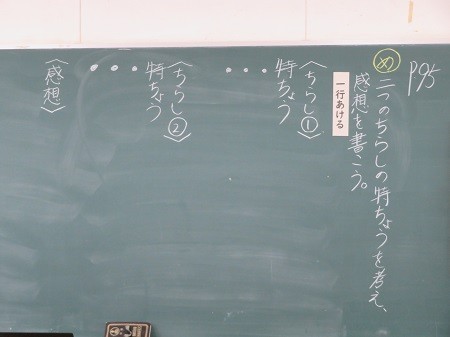 P95
め 二つのちらしの特ちょうを考え、
感想を書こう。
一行あける
〈ちらし①〉
特ちょう
・・・
〈ちらし②〉
特ちょう
・・・
〈感想〉